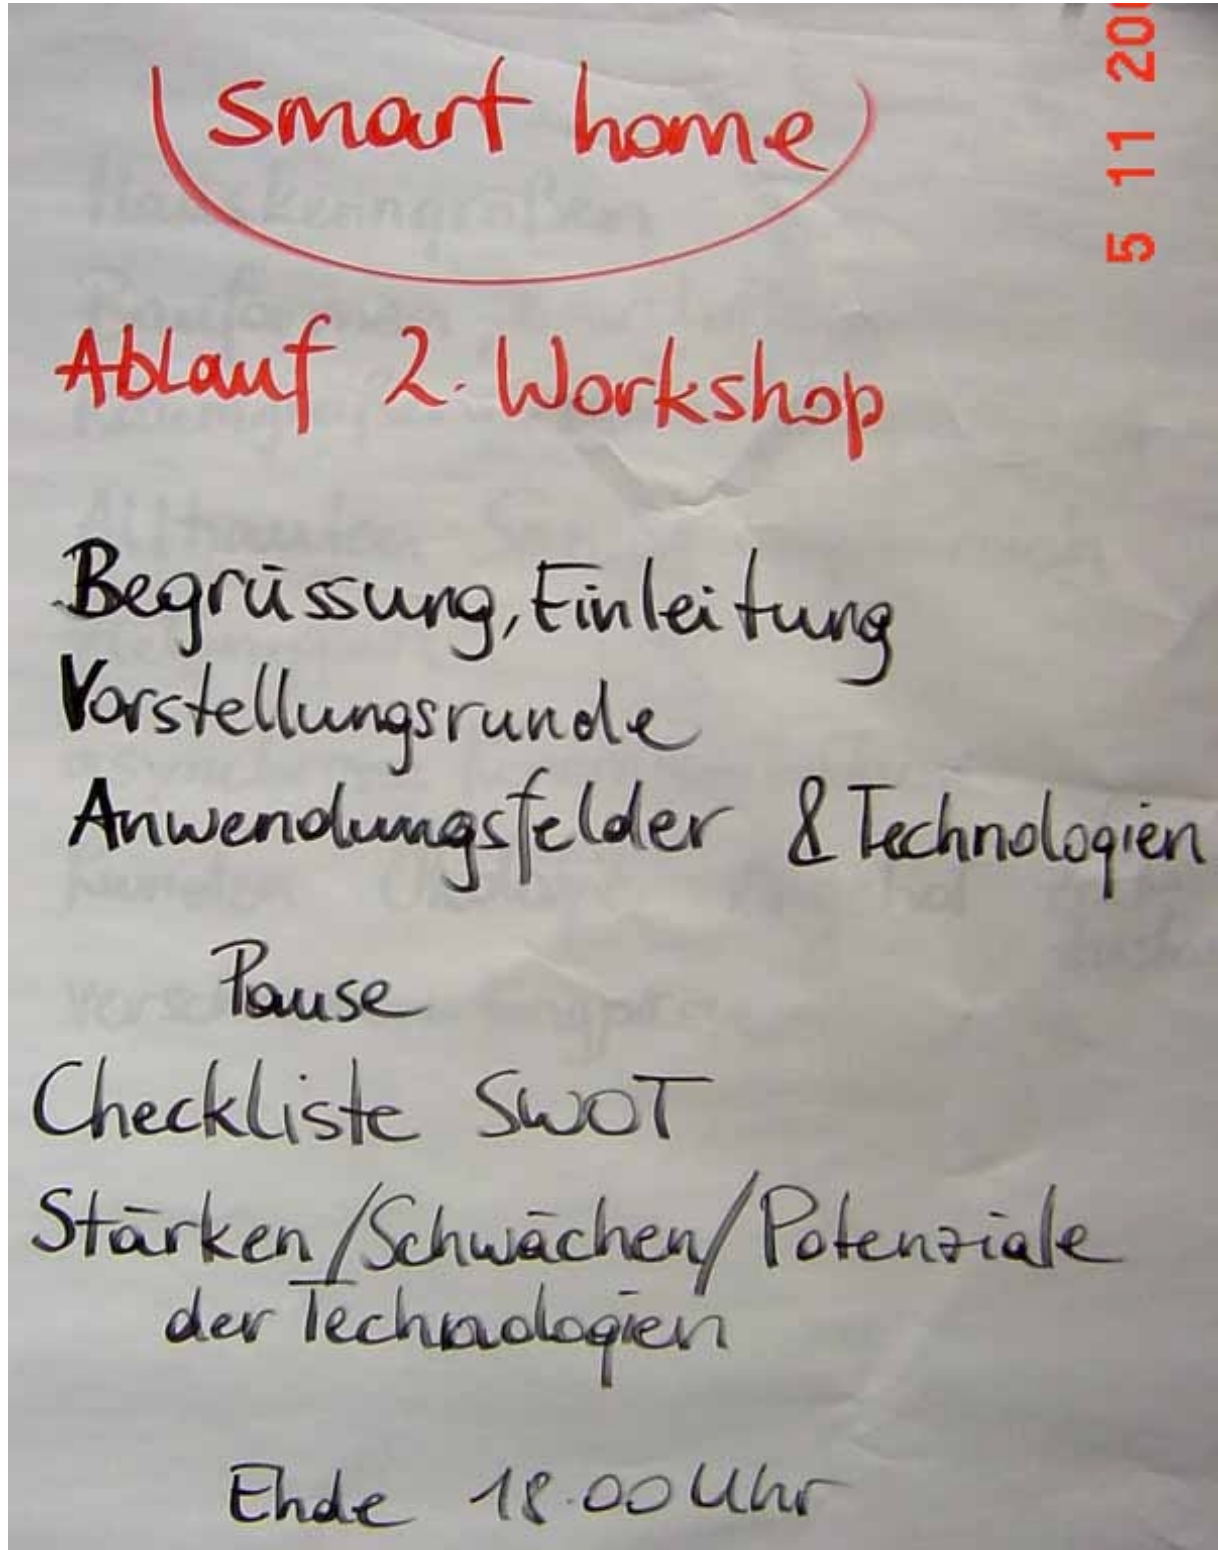 smart home
5 11 200
Ablauf 2. Workshop
Begrüssung, Einleitung
Vorstellungsrunde
Anwendungsfelder & Technologien
Pause
Checkliste SWOT
Stärken/Schwächen/Potenziale
der Technologien
Ende 18.00 Uhr